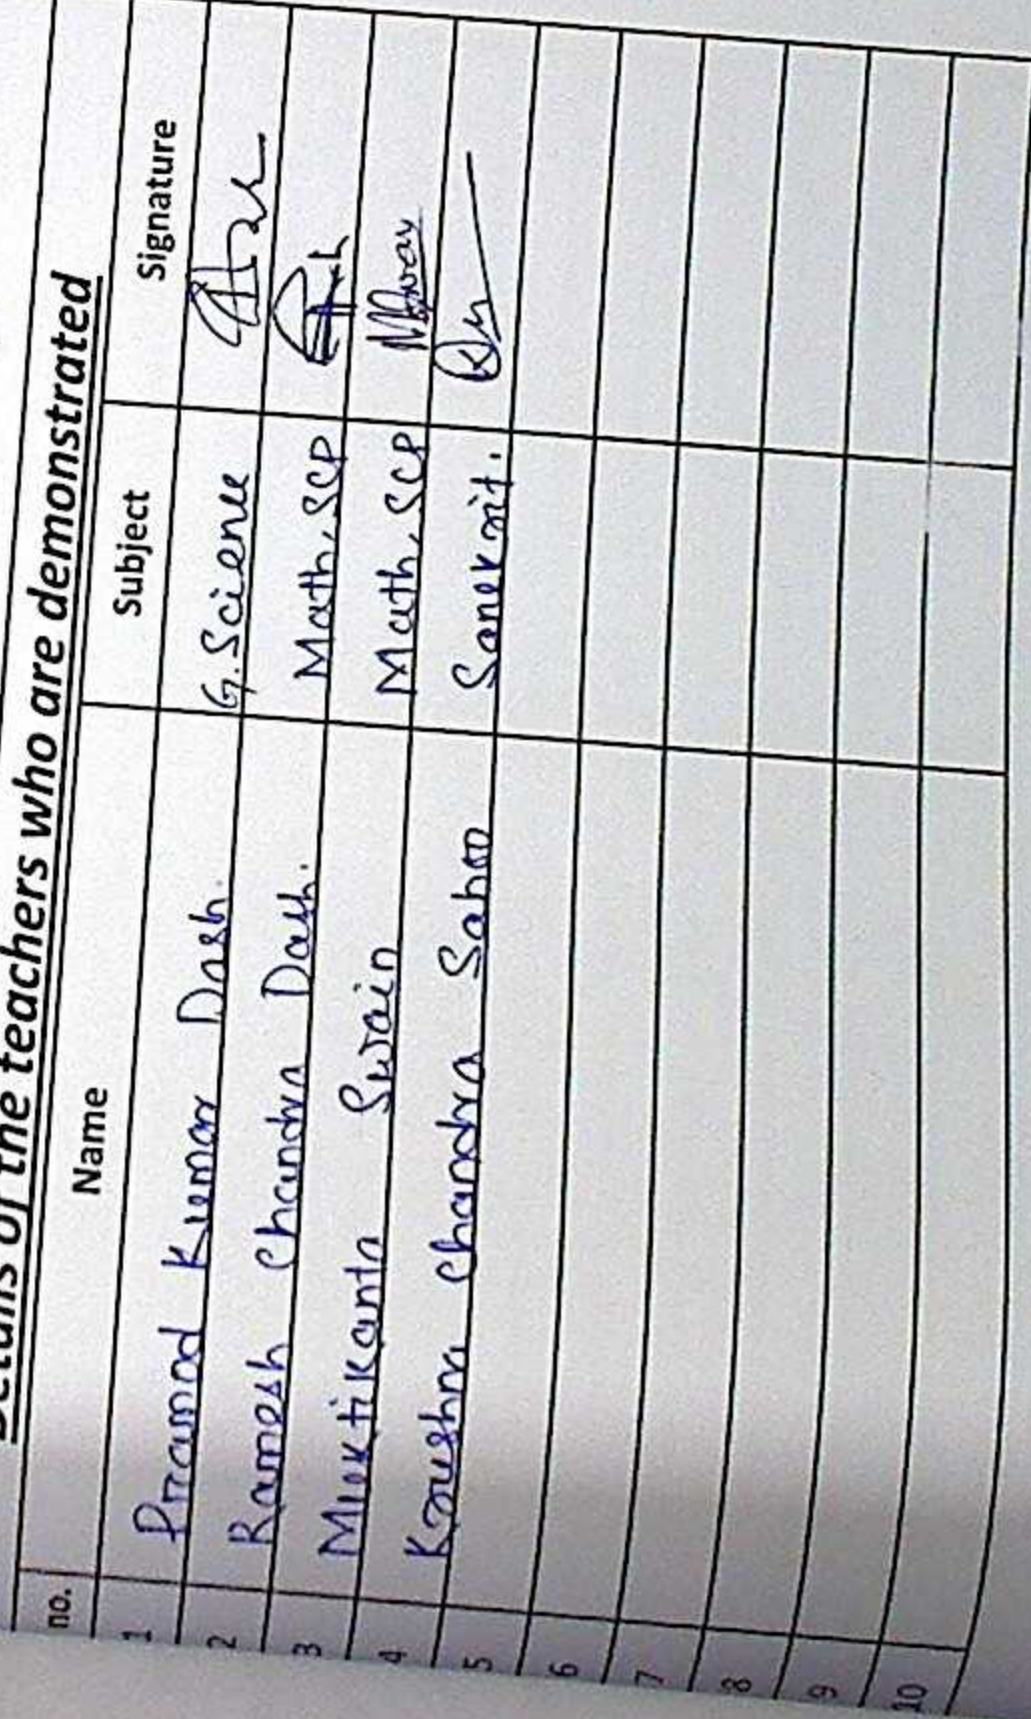 Details of the teachers who are demonstrated
no. Name Subject Signature
1 Pramod Kumar Dash. G. Science
2 Ramesh Chandra Dash. Math, SCP
3 Muktikanta Swain Math, SCP
4 Krushna Chandra Sahoo Sanskrit.
5
6
7
8
9
10